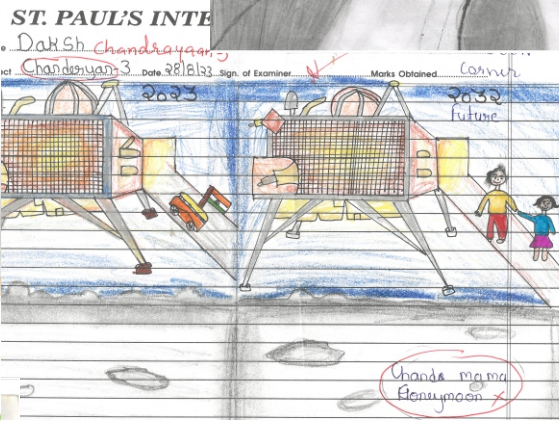 ST. PAUL'S INTE
Daksh Chandrayaan
Chanderyan-3 Date 28/8/23 Sign. of Examiner Marks Obtained Corner
2023 2032
future
Chanda mama
Honeymoon X